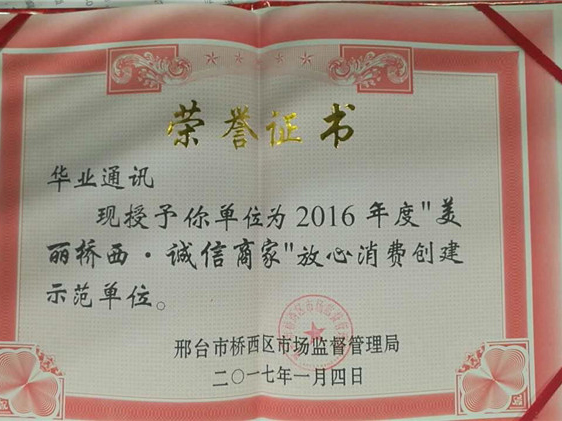 荣誉证书
华业通讯
现授予你单位为2016年度"美
丽桥西·诚信商家"放心消费创建
示范单位。
邢台市桥西区市场监督管理局
二〇一七年一月四日